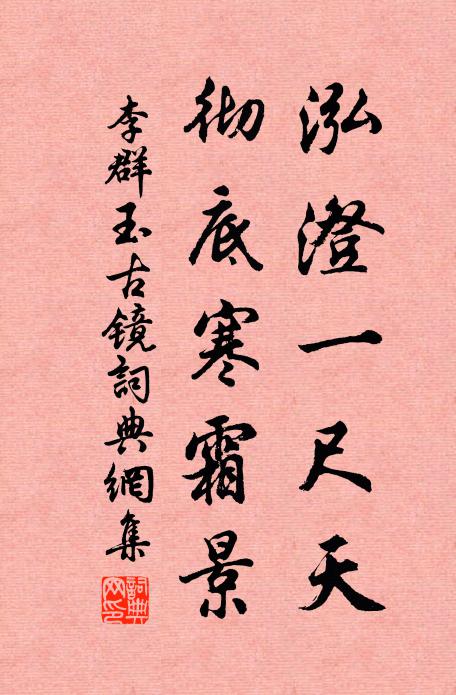 泓澄一尺天
彻底寒霜景
李群玉古镜詞典網集
詞典網印